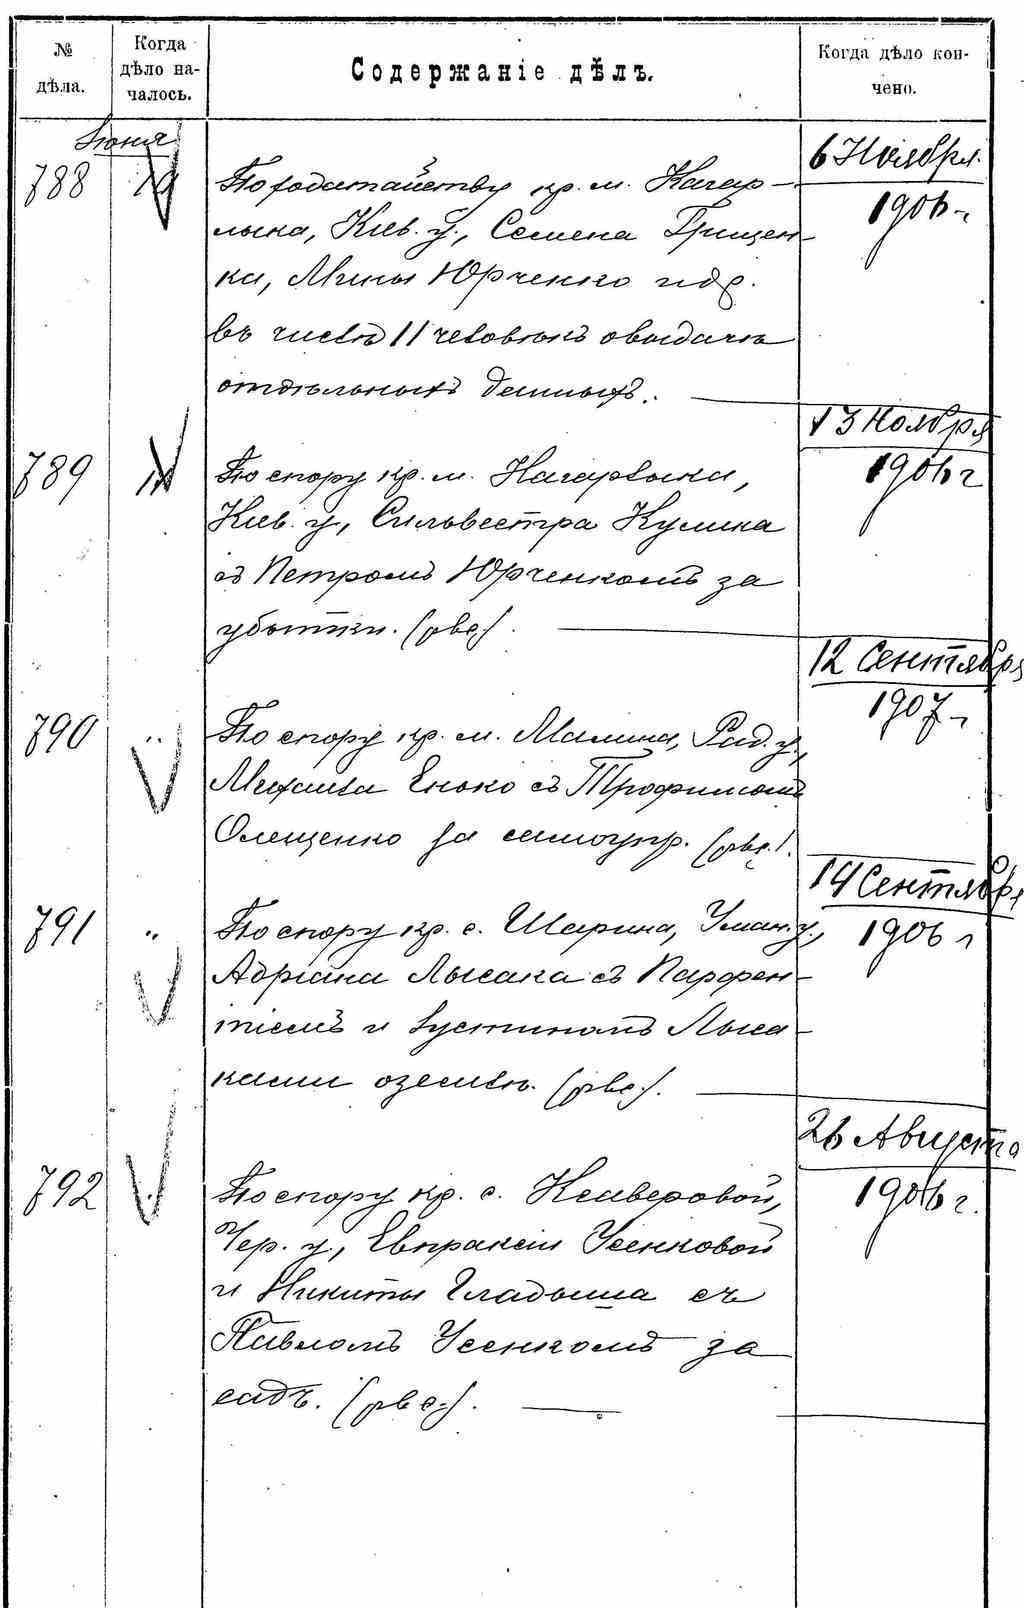 № дѣла.
Когда дѣло на-
чалось.
Содержаніе дѣлъ.
Когда дѣло кон-
чено.
Іюня
788
19
По ходатайству кр. м. Кагар-
лыка, Кіев. у., Семена Грищен-
ка, Мины Юрченко и др.
въ числѣ 11 человѣкъ о выдачѣ
отдѣльныхъ данныхъ.
6 Ноября
1906 г.
789
По спору кр. м. Кагарлыка,
Кіев. у., Сильвестра Кулика
съ Петромъ Юрченкомъ за
убытки. (рвс.).
13 Ноября
1906 г
790
"
По спору кр. м. Малина, Рад. у.,
Михаила Енько съ Трофимомъ
Олещенко за самоупр. (рвс.).
12 Сентября
1907 г
791
"
По спору кр. с. Шарина, Уман. у.,
Адріана Лысака съ Парфен-
тіемъ и Іустиномъ Лыса-
ками о землѣ. (рвс.).
14 Сентября
1906 г
792
По спору кр. с.
Чер. у., Евпраксіи Усенковой
и Никиты Гладыша съ
Павломъ Усенкомъ за
садъ. (рвс.).
26 Августа
1906 г.